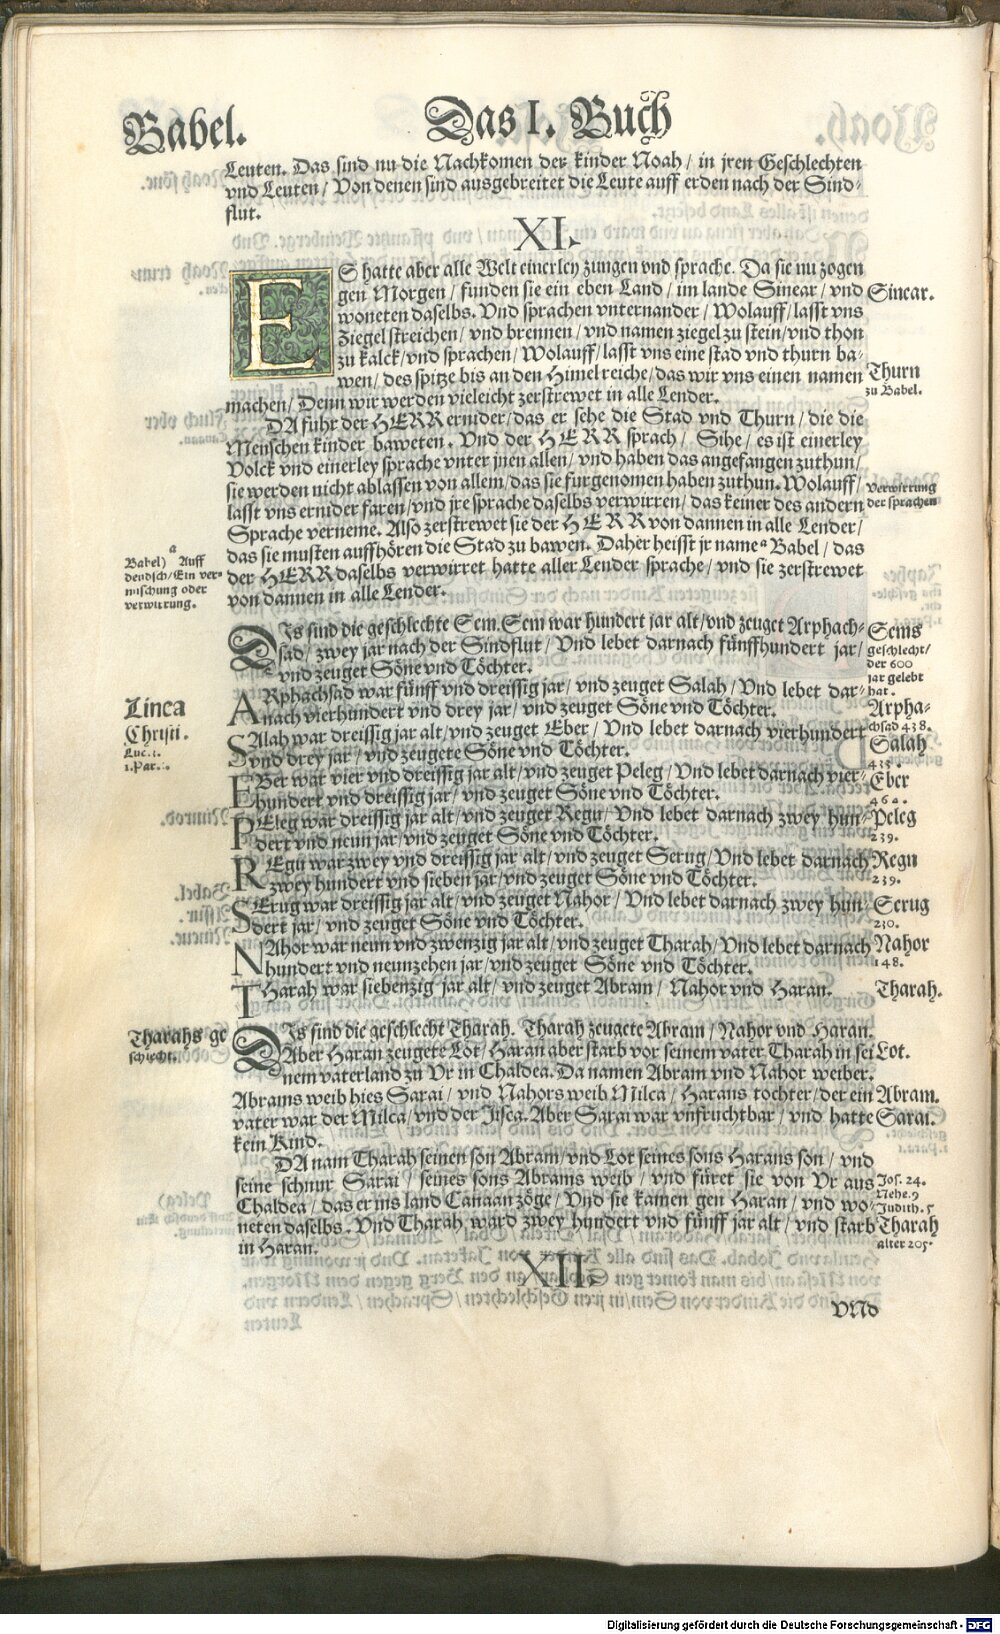 Babel.
Das I. Buch
Leuten. Das sind nu die Nachkomen der kinder Noah / in jren Geschlechten
vnd Leuten / Von denen sind ausgebreitet die Leute auff erden nach der Sind-
flut.
XI.
ES hatte aber alle Welt einerley zungen vnd sprache. Da sie nu zogen
gen Morgen / funden sie ein eben Land / im lande Sinear / vnd
Sinear.
woneten daselbs. Vnd sprachen vnternander / Wolauff / lasst vns
Ziegel streichen / vnd brennen / vnd namen ziegel zu stein / vnd thon
zu kalck / vnd sprachen / Wolauff / lasst vns eine stad vnd thurn ba-
wen / des spitze bis an den Himel reiche / das wir vns einen namen
Thurn
zu Babel.
machen / Denn wir werden vieleicht zerstrewet in alle Lender.
DA fuhr der HERR ernider / das er sehe die Stad vnd Thurn / die die
Menschen kinder baweten. Vnd der HERR sprach / Sihe / es ist einerley
Volck vnd einerley sprache vnter jnen allen / vnd haben das angefangen zuthun /
sie werden nicht ablassen von allem / das sie furgenomen haben zuthun. Wolauff /
Verwirrung
lasst vns ernider faren / vnd jre sprache daselbs verwirren / das keiner des andern
der sprachen
Sprache verneme. Also zerstrewet sie der HERR von dannen in alle Lender /
das sie musten auffhören die Stad zu bawen. Daher heisst jr name a Babel / das
der HERR daselbs verwirret hatte aller Lender sprache / vnd sie zerstrewet
von dannen in alle Lender.
a
Babel) Auff
deudsch / Ein ver-
mischung oder
verwirrung.
DIs sind die geschlechte Sem. Sem war hundert jar alt / vnd zeuget Arphach-
Sems
sad / zwey jar nach der Sindflut / Vnd lebet darnach fünffhundert jar /
geschlecht /
vnd zeuget Söne vnd Töchter.
der 600
jar gelebt
hat.
ARphachsad war fünff vnd dreissig jar / vnd zeuget Salah / Vnd lebet dar-
nach vierhundert vnd drey jar / vnd zeuget Söne vnd Töchter.
Arpha-
chsad 438.
Linea
Christi.
Luc. 3.
1. Par. 1.
SAlah war dreissig jar alt / vnd zeuget Eber / Vnd lebet darnach vierhundert
vnd drey jar / vnd zeugete Söne vnd Töchter.
Salah
433.
EBer war vier vnd dreissig jar alt / vnd zeuget Peleg / Vnd lebet darnach vier-
hundert vnd dreissig jar / vnd zeuget Söne vnd Töchter.
Eber
464.
PEleg war dreissig jar alt / vnd zeuget Regu / Vnd lebet darnach zwey hun-
dert vnd neun jar / vnd zeuget Söne vnd Töchter.
Peleg
239.
REgu war zwey vnd dreissig jar alt / vnd zeuget Serug / Vnd lebet darnach
zwey hundert vnd sieben jar / vnd zeuget Söne vnd Töchter.
Regu
239.
SErug war dreissig jar alt / vnd zeuget Nahor / Vnd lebet darnach zwey hun-
dert jar / vnd zeuget Söne vnd Töchter.
Serug
230.
NAhor war neun vnd zwenzig jar alt / vnd zeuget Tharah / Vnd lebet darnach
hundert vnd neunzehen jar / vnd zeuget Söne vnd Töchter.
Nahor
148.
THarah war siebenzig jar alt / vnd zeuget Abram / Nahor vnd Haran.
Tharah.
Tharahs ge
schlecht.
DIs sind die geschlecht Tharah. Tharah zeugete Abram / Nahor vnd Haran.
Aber Haran zeugete Lot / Haran aber starb vor seinem vater Tharah in sei
Lot.
nem vaterland zu Vr in Chaldea. Da namen Abram vnd Nahor weiber.
Abrams weib hies Sarai / vnd Nahors weib Milca / Harans tochter / der ein
Abram.
vater war der Milca / vnd der Jisca. Aber Sarai war vnfruchtbar / vnd hatte
Sarai.
kein Kind.
DA nam Tharah seinen son Abram / vnd Lot seines sons Harans son / vnd
seine schnur Sarai / seines sons Abrams weib / vnd füret sie von Vr aus
Jos. 24.
Chaldea / das er ins land Canaan zöge / Vnd sie kamen gen Haran / vnd wo-
Nehe. 9
Judith. 5
neten daselbs. Vnd Tharah ward zwey hundert vnd fünff jar alt / vnd starb
Tharah
alter 205.
in Haran.
XII.
VNd
Digitalisierung gefördert durch die Deutsche Forschungsgemeinschaft - DFG